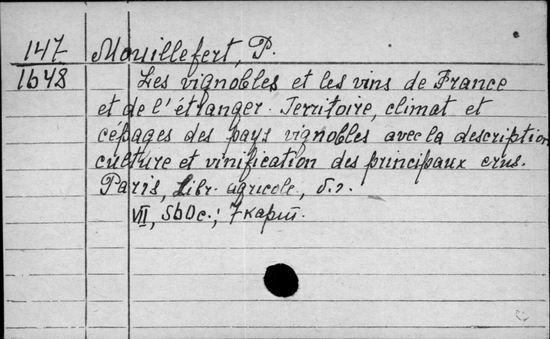 147 Mouillefert, P.
1648 Les vignobles et les vins de France
et de l'étranger. Territoire, climat et
cepages des pays vignobles avec la description
culture et vinification des principaux crus.
Paris, Libr. agricole, б.г.
VII, 560c.; 7 карт.